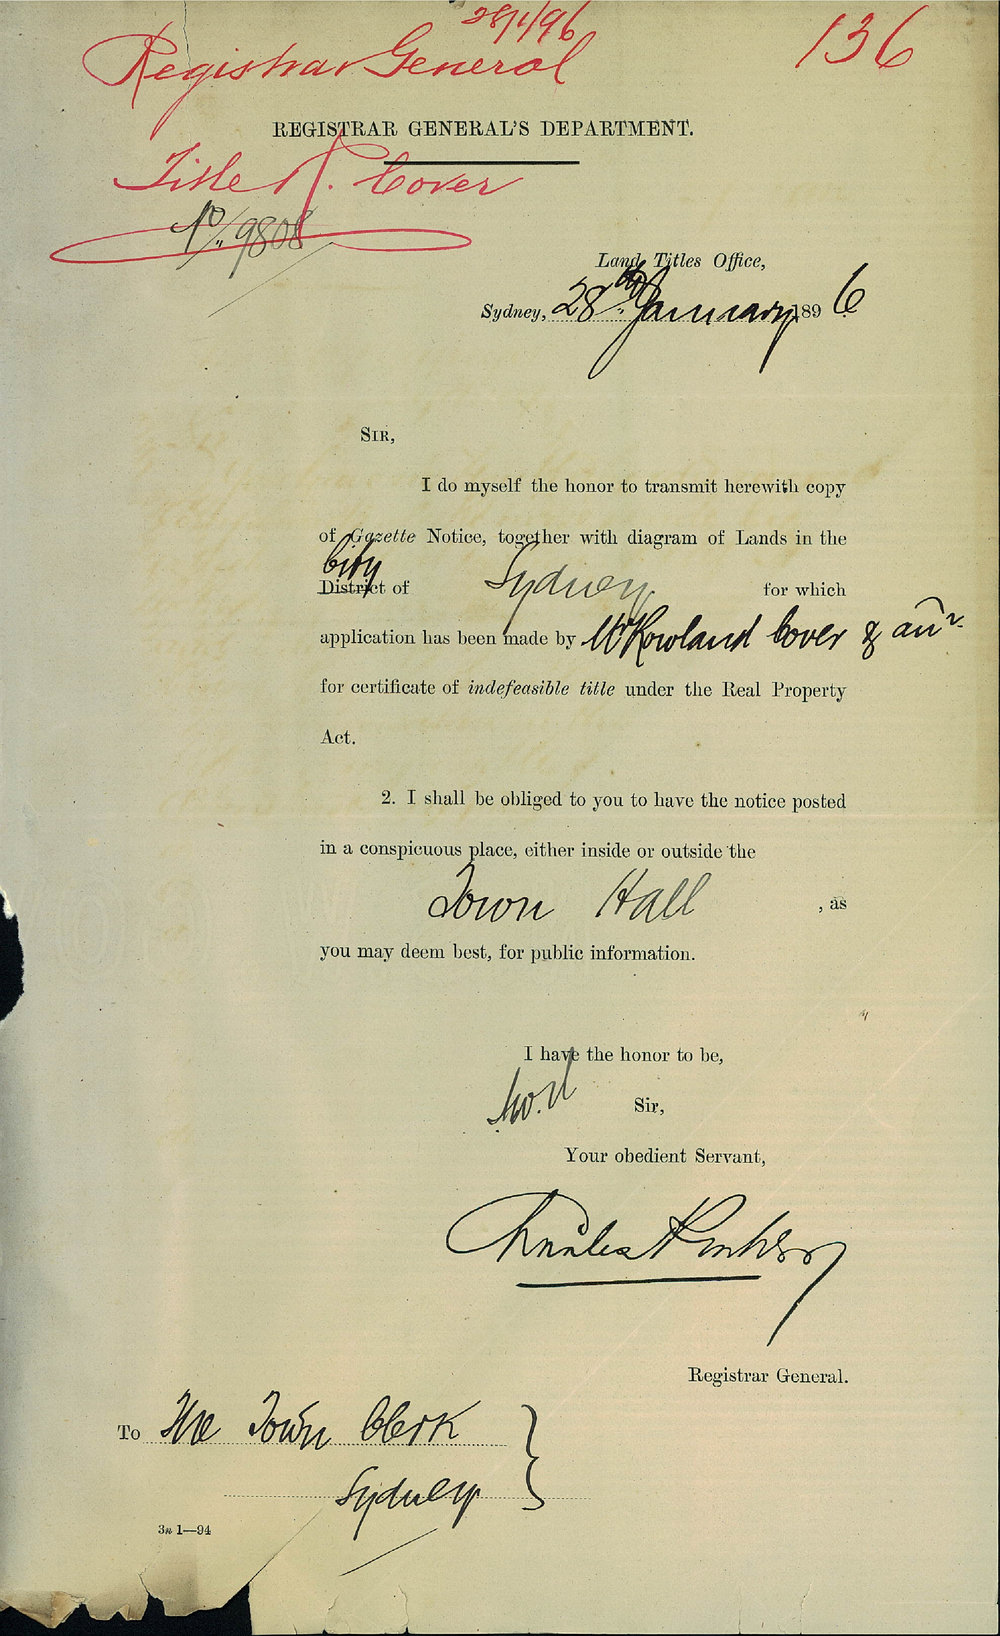 28/1/96
Registrar General
136
REGISTRAR GENERAL'S DEPARTMENT.
Title R. Cover
No/. 9808
Land Titles Office,
Sydney, 28th January 1896
SIR,
I do myself the honor to transmit herewith copy
of Gazette Notice, together with diagram of Lands in the
City
District of Sydney for which
application has been made by Mr Rowland Cover & anr
for certificate of indefeasible title under the Real Property
Act.
2. I shall be obliged to you to have the notice posted
in a conspicuous place, either inside or outside the
Town Hall , as
you may deem best, for public information.
I have the honor to be,
Sir,
Your obedient Servant,
Charles
Registrar General.
To The Town Clerk
Sydney
3a 1—94